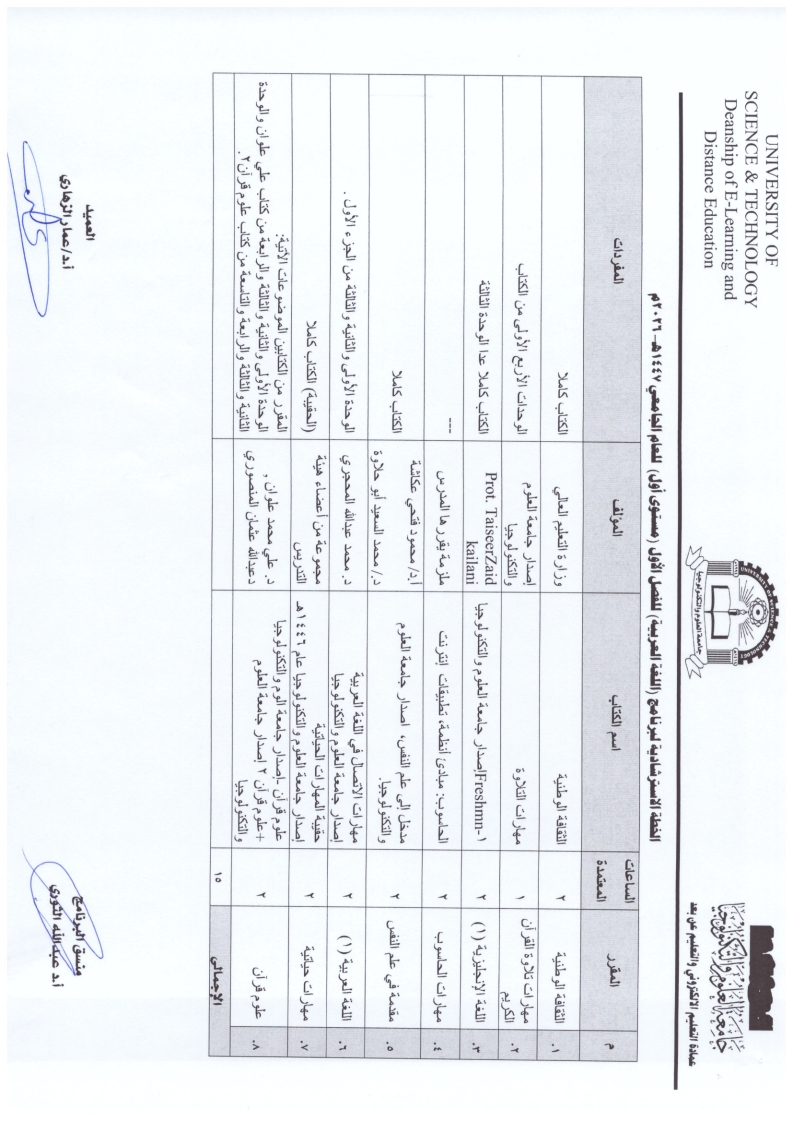 UNIVERSITY OF
SCIENCE & TECHNOLOGY
Deanship of E-Learning and
Distance Education
جامعة العلوم والتكنولوجيا
جامعة العلوم والتكنولوجيا
عمادة التعليم الالكتروني والتعليم عن بعد
الخطة الاسترشادية لبرنامج (اللغة العربية) للفصل الأول (مستوى أول) للعام الجامعي ١٤٤٧هـ - ٢٠٢٦م
م المقرر الساعات المعتمدة اسم الكتاب المؤلف المفردات
١. الثقافة الوطنية ٢ الثقافة الوطنية وزارة التعليم العالي الكتاب كاملا
٢. مهارات تلاوة القرآن الكريم ١ مهارات التلاوة إصدار جامعة العلوم والتكنولوجيا الوحدات الأربع الأولى من الكتاب
٣. اللغة الإنجليزية (١) ٢ Freshmn-١ إصدار جامعة العلوم والتكنولوجيا Prot. TaiseerZaid kailani الكتاب كاملا عدا الوحدة الثالثة
٤. مهارات الحاسوب ٢ الحاسوب: مبادئ أنظمة، تطبيقات إنترنت ملزمة يقررها المدرس ---
٥. مقدمة في علم النفس ٢ مدخل إلى علم النفس، اصدار جامعة العلوم والتكنولوجيا. أ.د/ محمود فتحي عكاشة
د./ محمد السعيد أبو حلاوة الكتاب كاملا
٦. اللغة العربية (١) ٢ مهارات الاتصال في اللغة العربية
إصدار جامعة العلوم والتكنولوجيا د. محمد عبدالله المحجري الوحدة الأولى والثانية والثالثة من الجزء الأول .
٧. مهارات حياتية ٢ حقيبة المهارات الحياتية
إصدار جامعة العلوم والتكنولوجيا عام ١٤٤٦هـ مجموعة من أعضاء هيئة التدريس (الحقيبة) الكتاب كاملا
٨. علوم قرآن ٢ علوم قرآن -إصدار جامعة الوم والتكنولوجيا
+علوم قرآن ٢ إصدار جامعة العلوم والتكنولوجيا د. علي محمد علوان ,
د عبدالله عثمان المنصوري المقرر من الكتابين الموضوعات الآتية:
الوحدة الأولى والثانية والثالثة والرابعة من كتاب علي علوان والوحدة
الثانية والثالثة والرابعة والتاسعة من كتاب علوم قرآن٢.
الإجمالي ١٥
منسق البرنامج
أ.د عبدالله الثوري
العميد
أ.د/عمار الزهاري